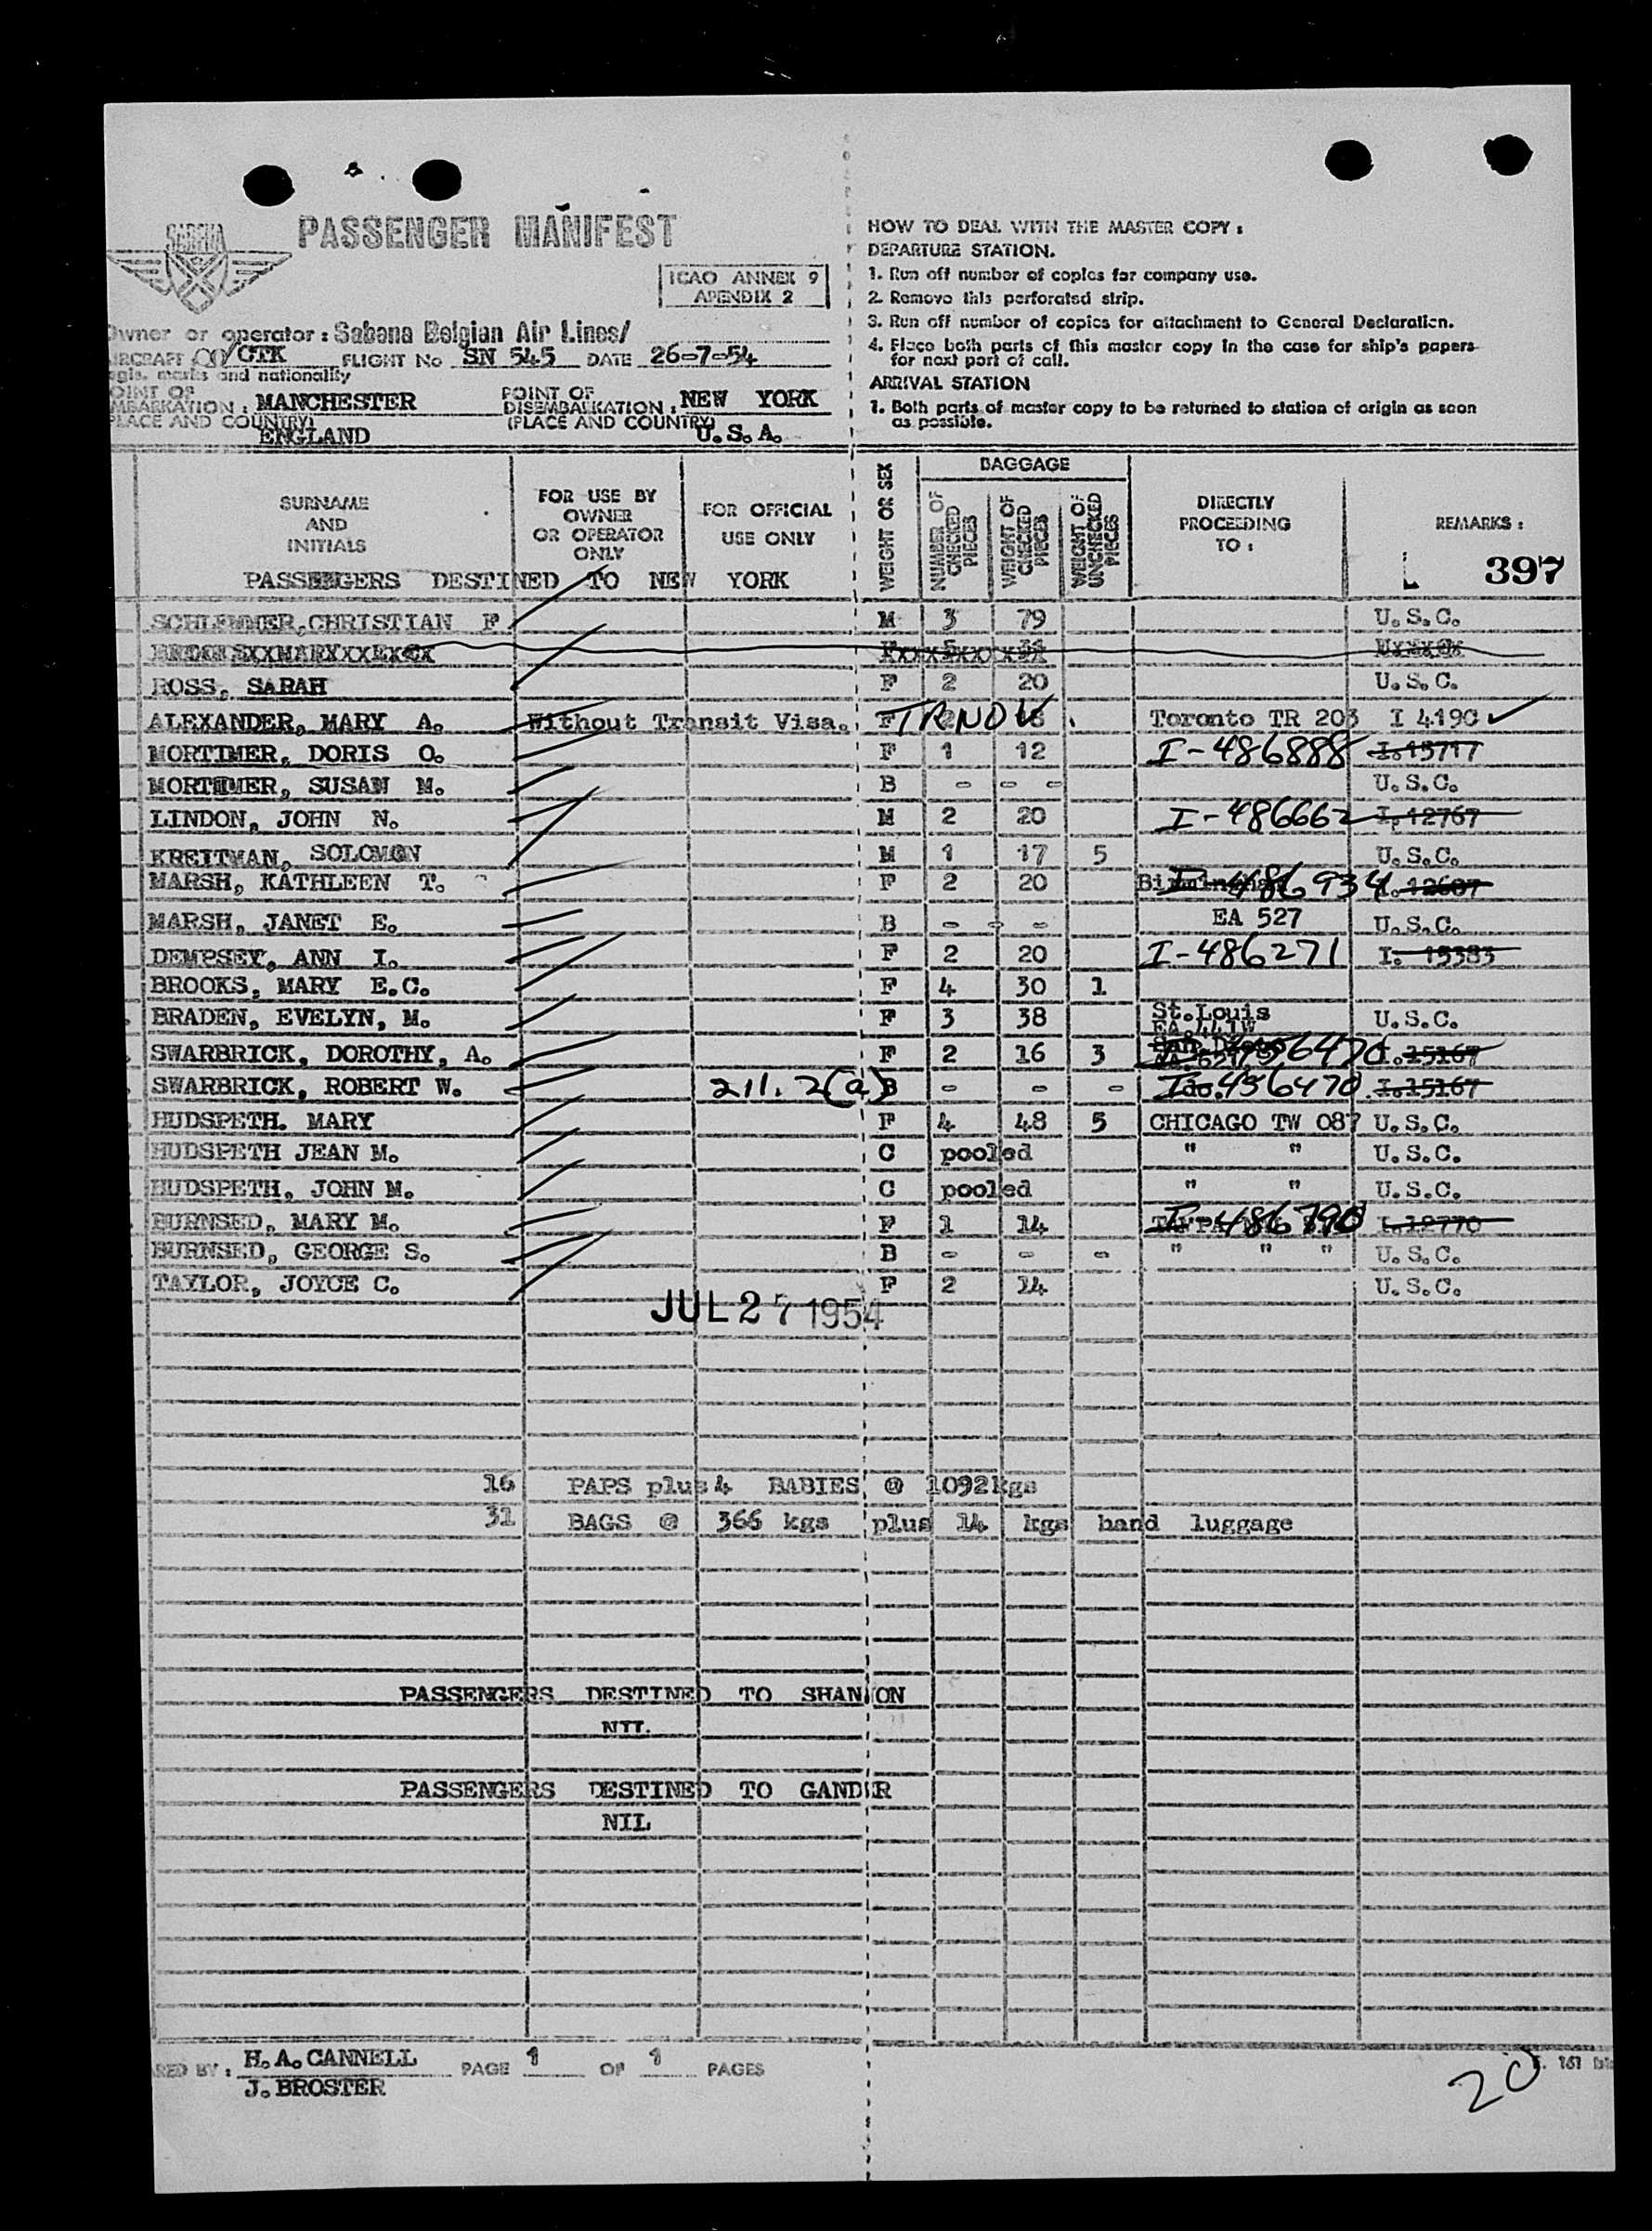 SABENA
PASSENGER MANIFEST
ICAO ANNEX 9
APENDIX 2
Owner or operator : Sabena Belgian Air Lines/
AIRCRAFT OO/CTK FLIGHT No SN 545 DATE 26-7-54
regis. marks and nationality
POINT OF EMBARKATION : MANCHESTER
(PLACE AND COUNTRY) ENGLAND
POINT OF DISEMBALKATION : NEW YORK
(PLACE AND COUNTRY) U.S.A.
HOW TO DEAL WITH THE MASTER COPY :
DEPARTURE STATION.
1. Run off number of copies for company use.
2. Remove this perforated strip.
3. Run off number of copies for attachment to General Declaration.
4. Place both parts of this master copy in the case for ship's papers
for next port of call.
ARRIVAL STATION
1. Both parts of master copy to be returned to station of origin as soon
as possible.
SURNAME AND INITIALS
FOR USE BY OWNER OR OPERATOR ONLY
FOR OFFICIAL USE ONLY
WEIGHT OR SEX
BAGGAGE
NUMBER OF CHECKED PIECES
WEIGHT OF CHECKED PIECES
WEIGHT OF UNCHECKED PIECES
DIRECTLY PROCEEDING TO :
REMARKS :
L 397
PASSENGERS DESTINED TO NEW YORK
SCHLEMMER, CHRISTIAN F. M 3 79 U.S.C.
ROSS, SARAH F 2 20 U.S.C.
ALEXANDER, MARY A. Without Transit Visa. F TRNOV Toronto TR 203 I 4190
MORTIMER, DORIS O. F 1 12 I-486888 I.13717
MORTIMER, SUSAN M. B - - - U.S.C.
LINDON, JOHN N. M 2 20 I-486662 I.12767
KREITMAN, SOLOMON M 1 17 5 U.S.C.
MARSH, KATHLEEN T. F 2 20 Birmingham I-486934 I.12607
MARSH, JANET E. B - - - EA 527 U.S.C.
DEMPSEY, ANN I. F 2 20 I-486271 I. 15383
BROOKS, MARY E.C. F 4 30 1
BRADEN, EVELYN, M. F 3 38 St.Louis EA.441W U.S.C.
SWARBRICK, DOROTHY, A. F 2 16 3 I.15167
SWARBRICK, ROBERT W. 211.2(a) B - - - I 456470 I.15167
HUDSPETH. MARY F 4 48 5 CHICAGO TW 087 U.S.C.
HUDSPETH JEAN M. C pooled " " U.S.C.
HUDSPETH, JOHN M. C pooled " " U.S.C.
BURNSED, MARY M. F 1 14 TAMPA I-486790 I.12770
BURNSED, GEORGE S. B - - - " " " U.S.C.
TAYLOR, JOYCE C. F 2 14 U.S.C.
JUL 27 1954
16 PAPS plus 4 BABIES @ 1092kgs
31 BAGS @ 366 kgs plus 14 kgs hand luggage
PASSENGERS DESTINED TO SHANNON
NIL.
PASSENGERS DESTINED TO GANDER
NIL
RED BY : H.A.CANNELL
J.BROSTER
PAGE 1 OF 1 PAGES
20